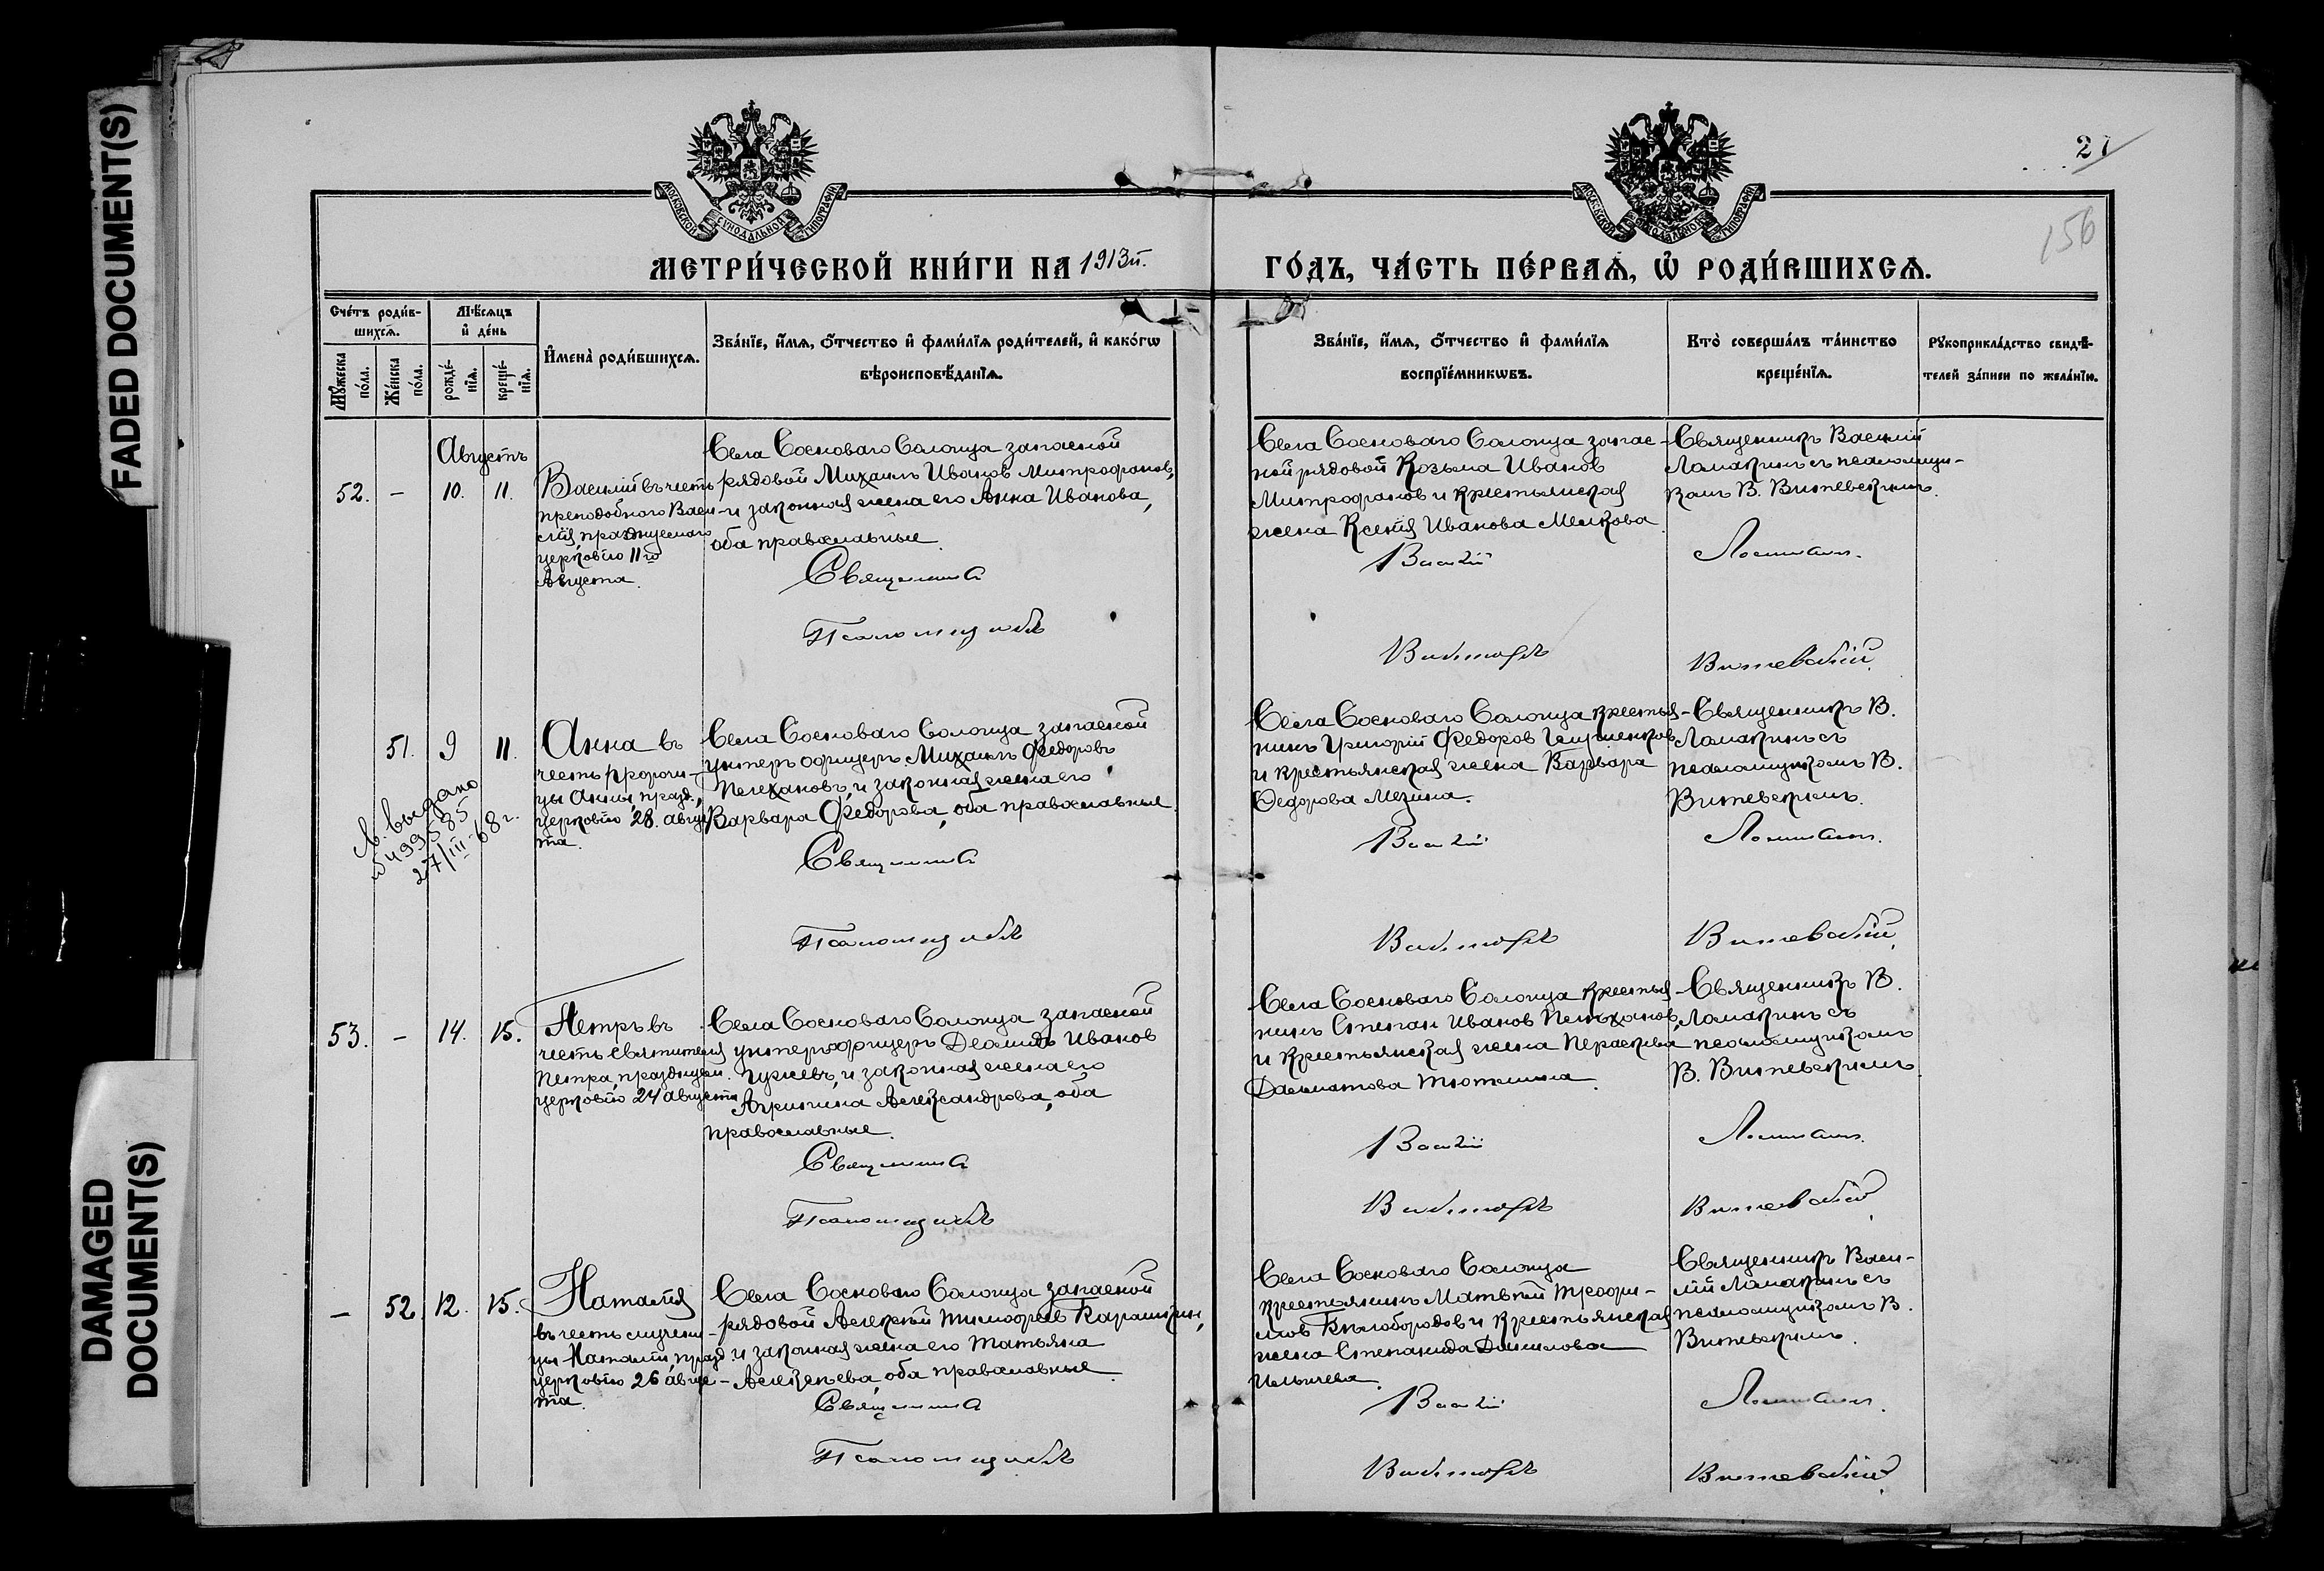 FADED DOCUMENT(S)
DAMAGED
DOCUMENT(S)
МОСКОВСКОЙ СѴНОДАЛЬНОЙ ТИПОГРАФІИ
МОСКОВСКОЙ СѴНОДАЛЬНОЙ ТИПОГРАФІИ
27
156
МЕТРИ́ЧЕСКОЙ КНИ́ГИ НА 1913й.
ГО́ДЪ, ЧА́СТЬ ПЕ́РВАѦ, Ѡ҆ РОДИ́ВШИХСѦ.
Сче́тъ роди́в-
шихсѧ.
Мѣ́сѧцъ
и҆ де́нь
Мꙋ́жеска
по́ла.
Же́нска
по́ла.
рожде́-
нїѧ.
креще́-
нїѧ.
И҆мена̀ роди́вшихсѧ.
Зва́нїе, и҆́мѧ, ѻ҆́тчество и҆ фами́лїѧ роди́телей, и҆ како́гѡ
вѣроисповѣ́данїѧ.
Зва́нїе, и҆́мѧ, ѻ҆́тчество и҆ фами́лїѧ
воспрїе́мникѡвъ.
Кто̀ соверша́лъ та́инство
креще́нїѧ.
Рꙋкоприкла́дство свидѣ́-
телей за́писи по жела́нїю.
Августъ
52. – 10. 11.
Василій въ честь
преподобного Васи-
лія, празднуемаго
церковію 11го
Августа.
Села Сосноваго Солонца запасной
рядовой Михаилъ Ивановъ Митрофановъ,
и законная жена его Анна Иванова,
оба православные.
Священникъ
Псаломщикъ
Села Сосноваго Солонца запас-
ной рядовой Козьма Иванов
Митрофанов и крестьянская
жена Ксенія Иванова Мелкова
Василій
Викторъ
Священникъ Василій
Ламакинъ съ псаломщи-
комъ В. Витевскимъ.
Ломакинъ.
Витевскій.
51. 9 11.
Св. выдано
№ 499585
27/III 68 г.
Анна въ
честь пророчи-
цы Анны, празд.
церковію 28. авгус
та.
Села Сосноваго Солонца запасной
унтеръ офицеръ Михаилъ Федоровъ
Пелехановъ, и законная жена его
Варвара Федорова, оба православные.
Священникъ
Псаломщикъ
Села Сосноваго Солонца крестья-
нинъ Григорій Федоров
и крестьянская жена Варвара
Федорова Мезина.
Василій
Викторъ
Священникъ В.
Ламакинъ съ
псаломщикомъ В.
Витевскимъ.
Ломакинъ.
Витевскій.
53. – 14. 15.
Петръ въ
честь святителя
Петра, празднуем.
церковію 24 августа
Села Сосноваго Солонца запасной
унтеръ офицеръ Деомидъ Иванов
и законная жена его
Агрипина Александрова, оба
православные.
Священникъ
Псаломщикъ
Села Сосноваго Солонца крестья-
нинъ Степан Иванов Пелехановъ,
и крестьянская жена Параскева
Далматова Тютькина.
Василій
Викторъ
Священникъ В.
Ламакинъ съ
псаломщикомъ
В. Витевскимъ
Ломакинъ.
Витевскій.
– 52. 12. 15.
Наталія
въ честь мучени-
цы Наталіи, празд.
церковію 26 авгус-
та.
Села Сосноваго Солонца запасной
рядовой Алексѣй Тимофеев Карашкин,
и законная жена его Татьяна
Алексѣева, оба православные.
Священникъ
Псаломщикъ
Села Сосноваго Солонца
крестьянинъ Матвѣй Трофи-
мов Бѣлобородов и крестьянская
жена Степанида Данилова
Ильичева.
Василій
Викторъ
Священникъ Васи-
лій Ламакинъ съ
псаломщикомъ В.
Витевскимъ.
Ломакинъ.
Витевскій.